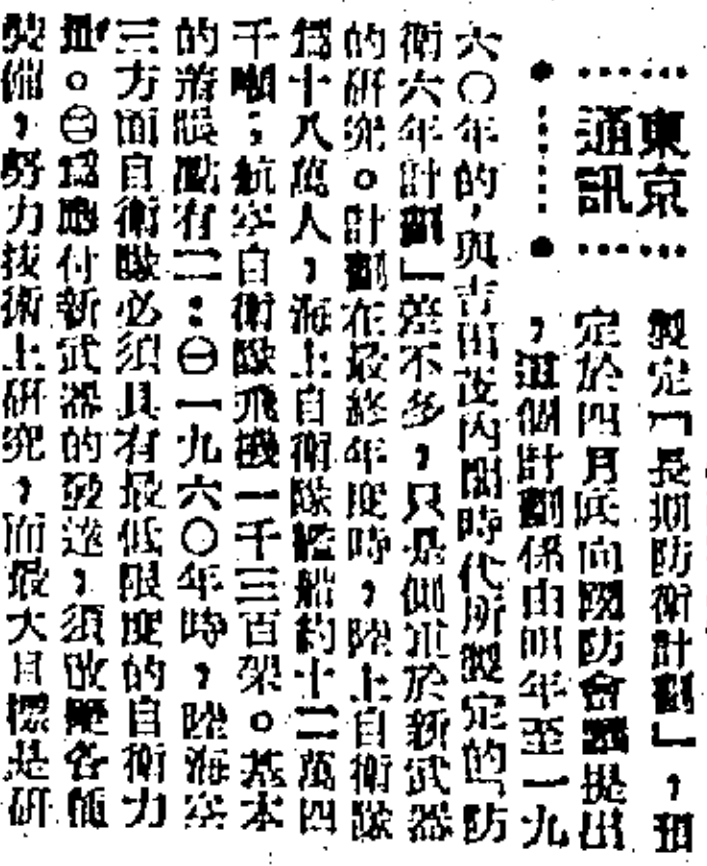 東京
通訊
製定「長期防衛計劃」，預
定於四月底向國防會議提出
，這個計劃係由明年至一九
六〇年的，與吉田茂內閣時代所製定的「防
衛六年計劃」差不多，只是側重於新武器
的研究。計劃在最終年度時，陸上自衛隊
爲十八萬人，海上自衛隊艦船約十二萬四
千噸；航空自衛隊飛機一千三百架。基本
的着眼點有二：㊀一九六〇年時，陸海空
三方面自衛隊必須具有最低限度的自衛力
量。㊁爲應付新武器的發達，須改變各種
裝備，努力技術上研究，而最大目標是研